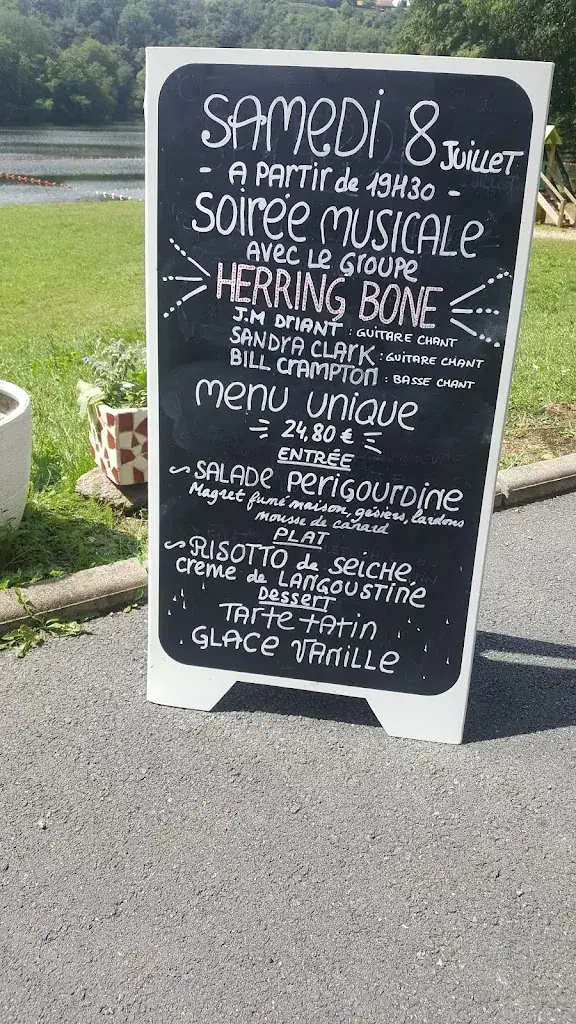 SAMEDI 8 JUILLET
- A PARTIR de 19H30 -
SOIRÉE MUSICALE
AVEC LE GROUPE
HERRING BONE
J.M DRIANT : GUITARE CHANT
SANDRA CLARK : GUITARE CHANT
BILL CRAMPTON : BASSE CHANT
MENU UNIQUE
24,80 €
ENTRÉE
~ SALADE PERIGOURDINE
Magret fumé maison, gésiers, lardons
mousse de canard
PLAT
~ RISOTTO de SEICHE,
CREME de LANGOUSTINE
DESSERT
TARTE TATIN
GLACE VANILLE